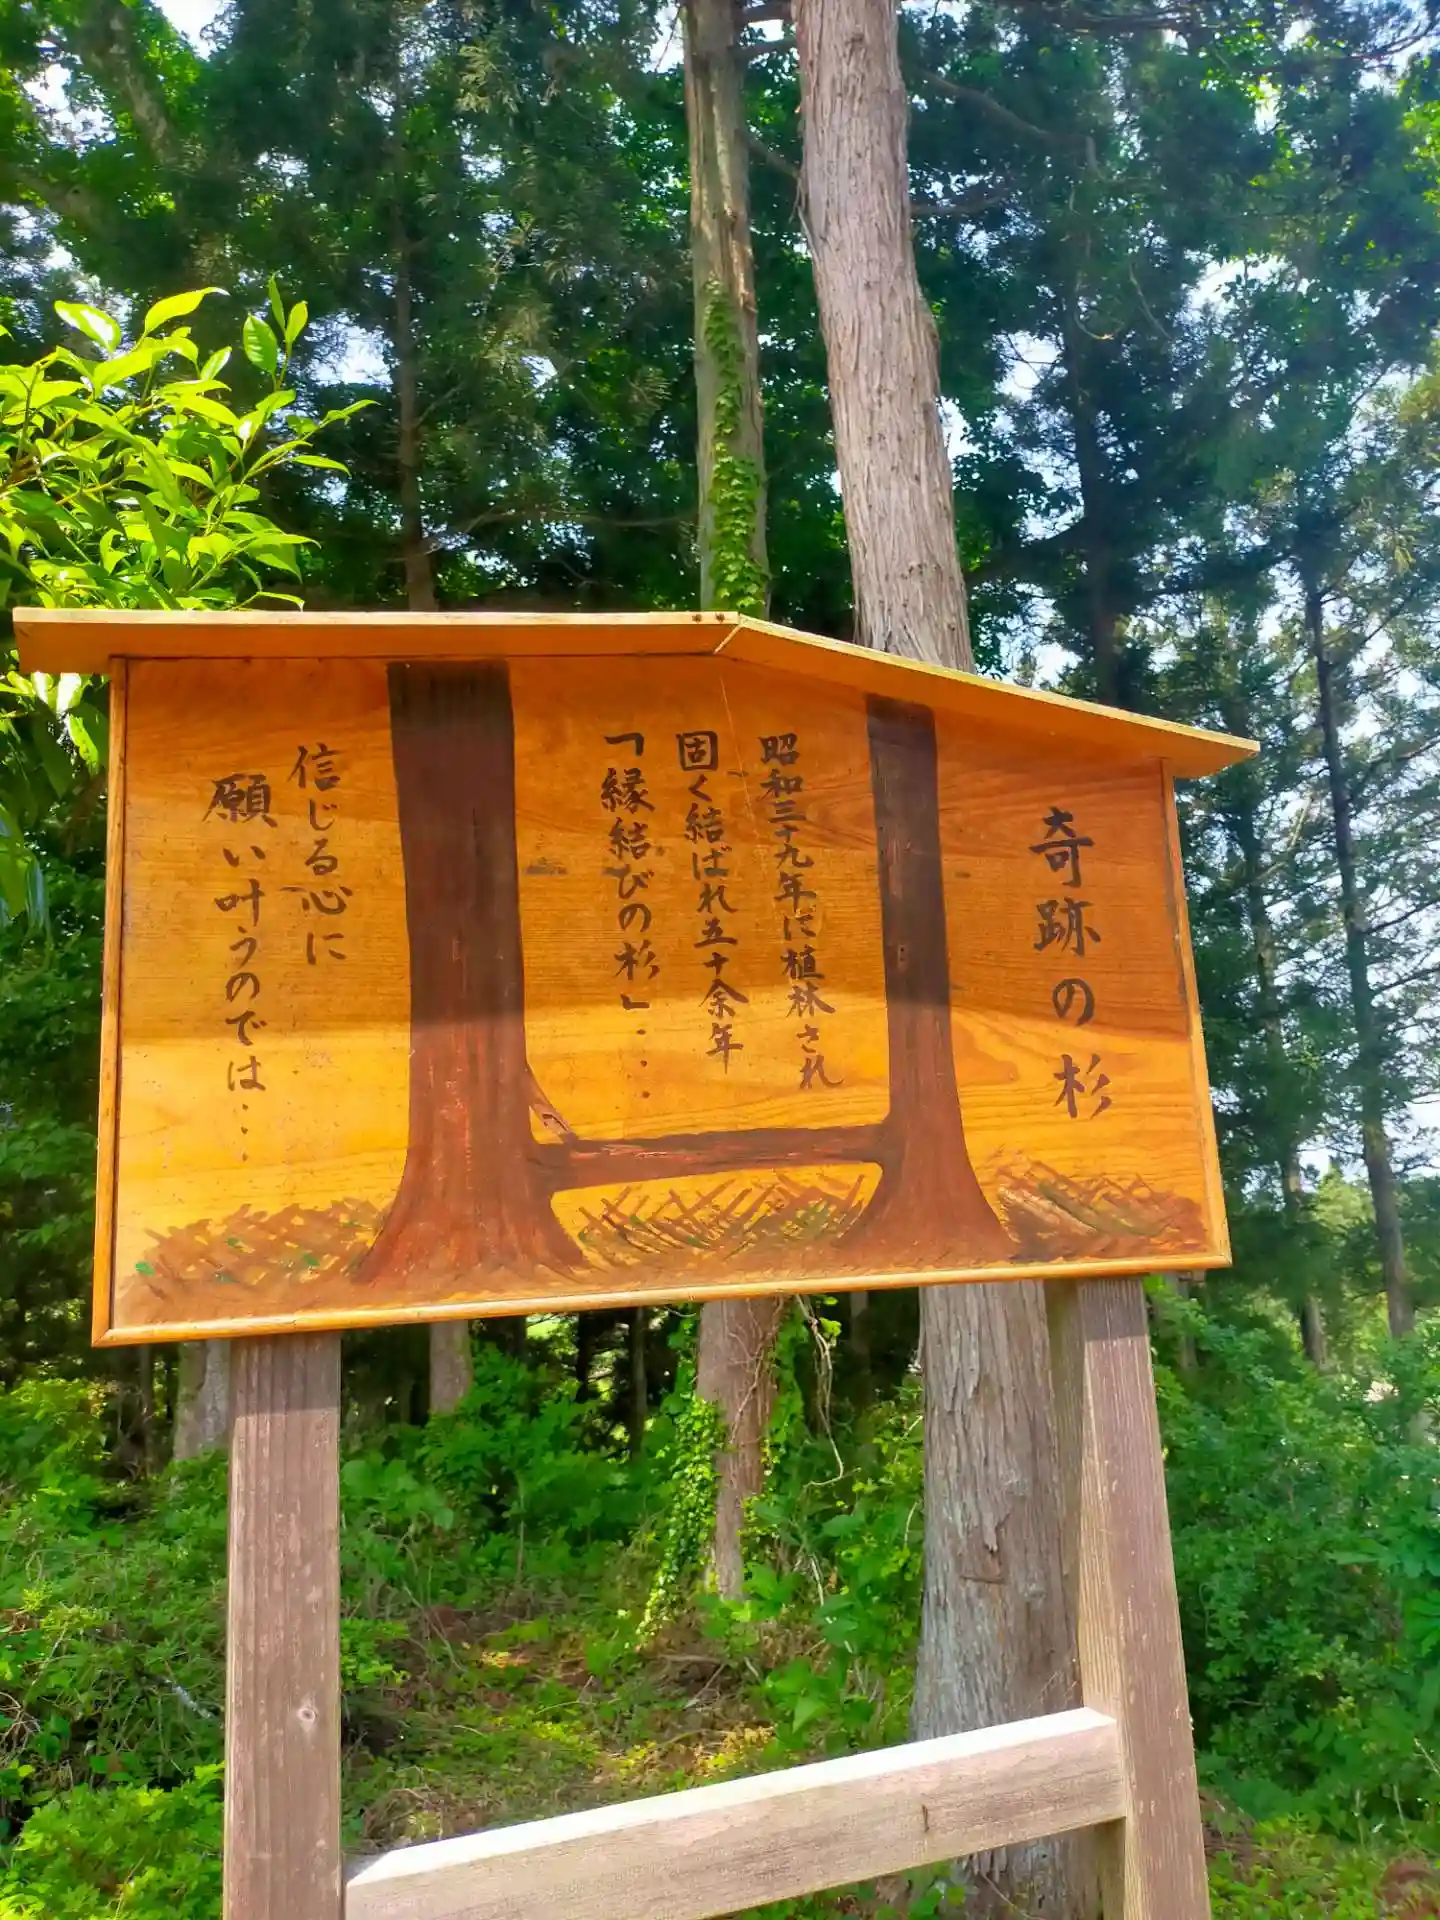 奇跡の杉
昭和三十九年に植林され
固く結ばれ五十余年
「縁結びの杉」‥‥
信じる心に
願い叶うのでは‥‥